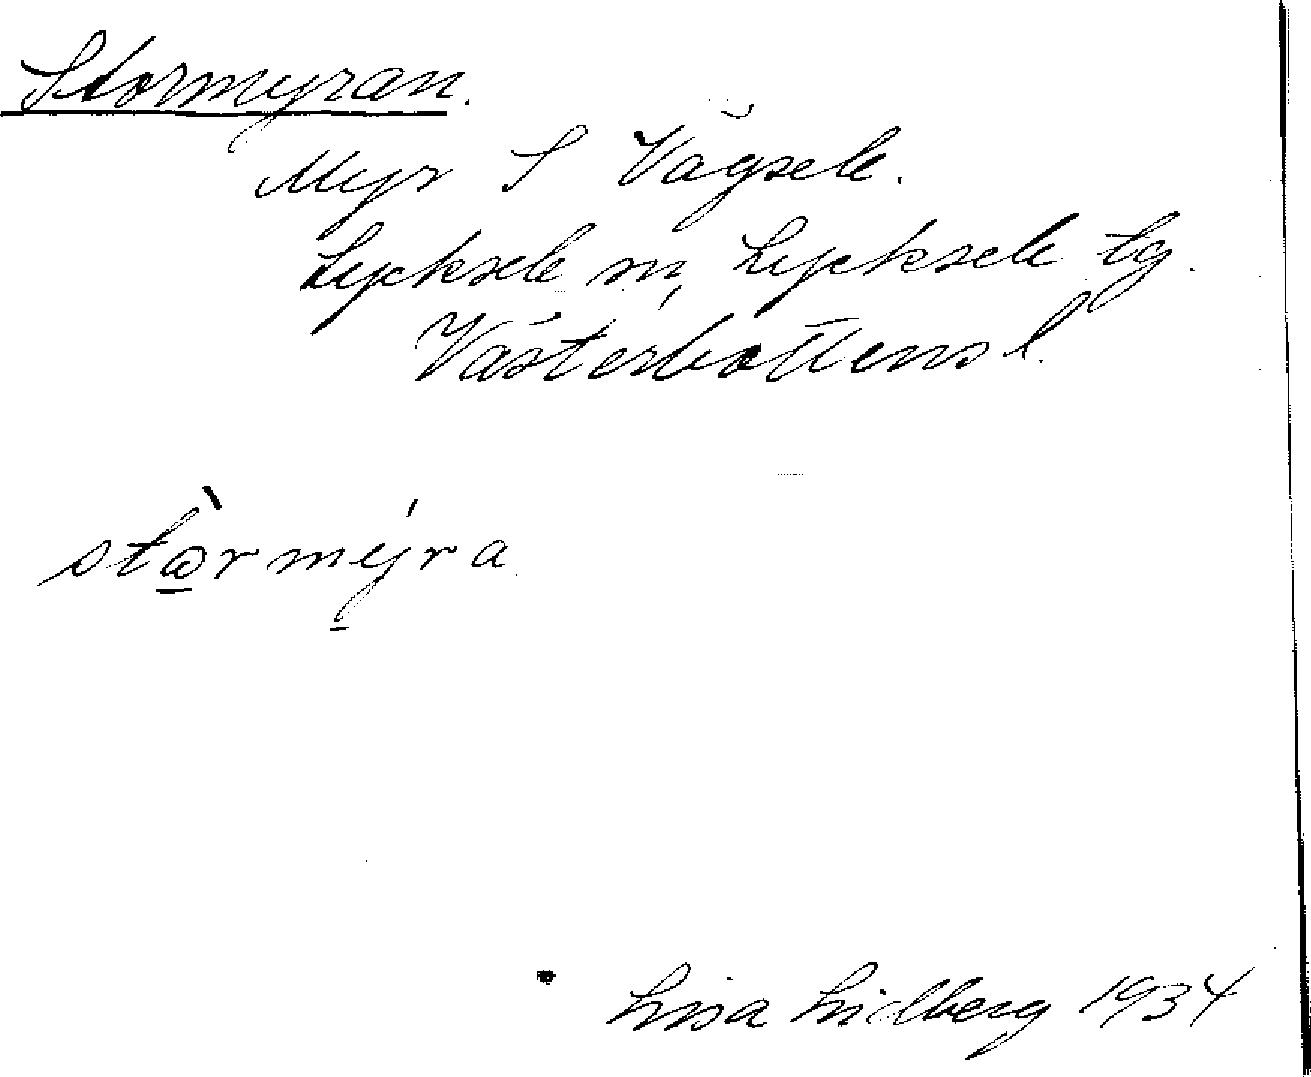 Stormyran.
Myr S Vägsele.
Lycksele sn, Lycksele tg.
Västerbottens l.
stòrmýra
Lisa Lidberg 1934